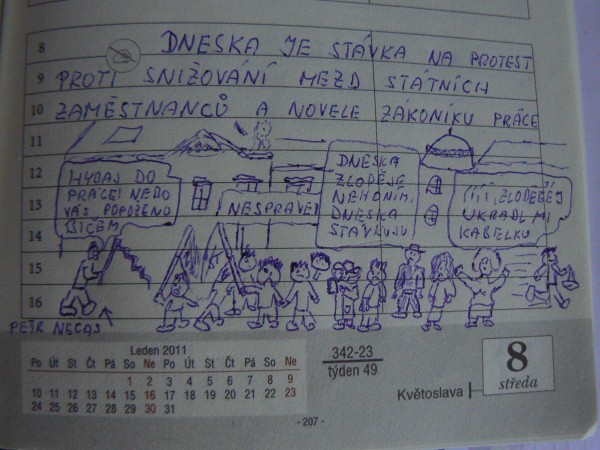 8
DNESKA JE STÁVKA NA PROTEST
9
PROTI SNIŽOVÁNÍ MEZD STÁTNÍCH
10
ZAMĚSTNANCŮ A NOVELE ZÁKONÍKU PRÁCE
11
12
13
14
15
16
HYBAJ DO
PRÁCE! NEBO
VÁS POPOŽENU
BIČEM
NESPRAVE
DNESKA
ZLODĚJE
NEHONÍM,
DNESKA
STÁVKUJU
ÍÍÍ, ZLODĚJ
UKRADL MI
KABELKU
PETR NEČAS
Leden 2011
Po Út St Čt Pá So Ne Po Út St Čt Pá So Ne
1 2 3 4 5 6 7 8 9
10 11 12 13 14 15 16 17 18 19 20 21 22 23
24 25 26 27 28 29 30 31
342-23
týden 49
Květoslava
8
středa
- 207 -